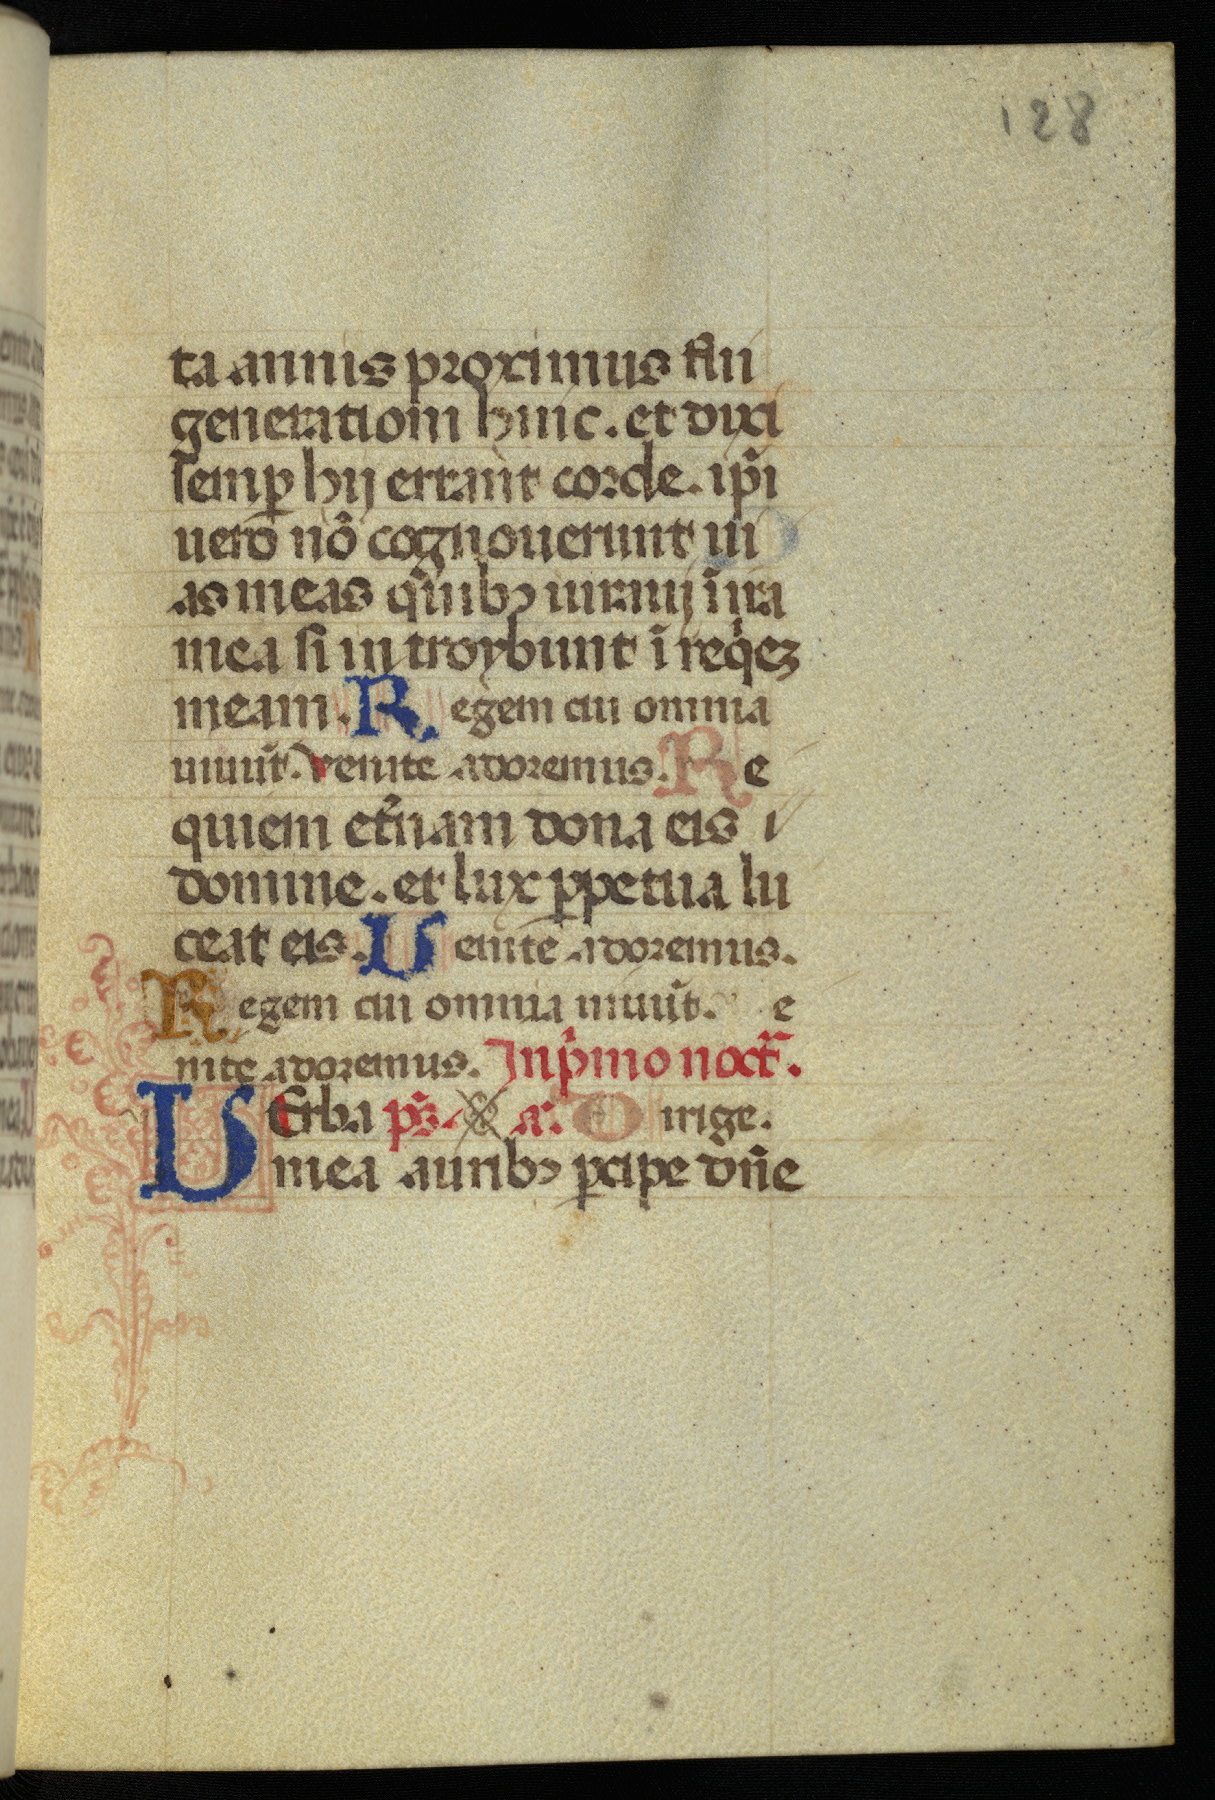 128
ta annis proximus fui
generationi huic. et dixi
semp̱ hij errant corde. ip̄i
uero nō cognouerunt ui
as meas quibꝫ iuraui ī ira
mea si introybunt ī req̄eꝫ
meam. Regem cui omnia
uiuūt. Venite adoremus. Re
quiem et̄nam dona eis
domine. et lux ꝑpetua lu
ceat eis. Uenite adoremus.
Regem cui omnia uiuūt. e
nite adoremus. In p̄mo noct̄.
UErba p̄s. a. Dirige.
mea auribꝫ ꝑcipe dn̄e